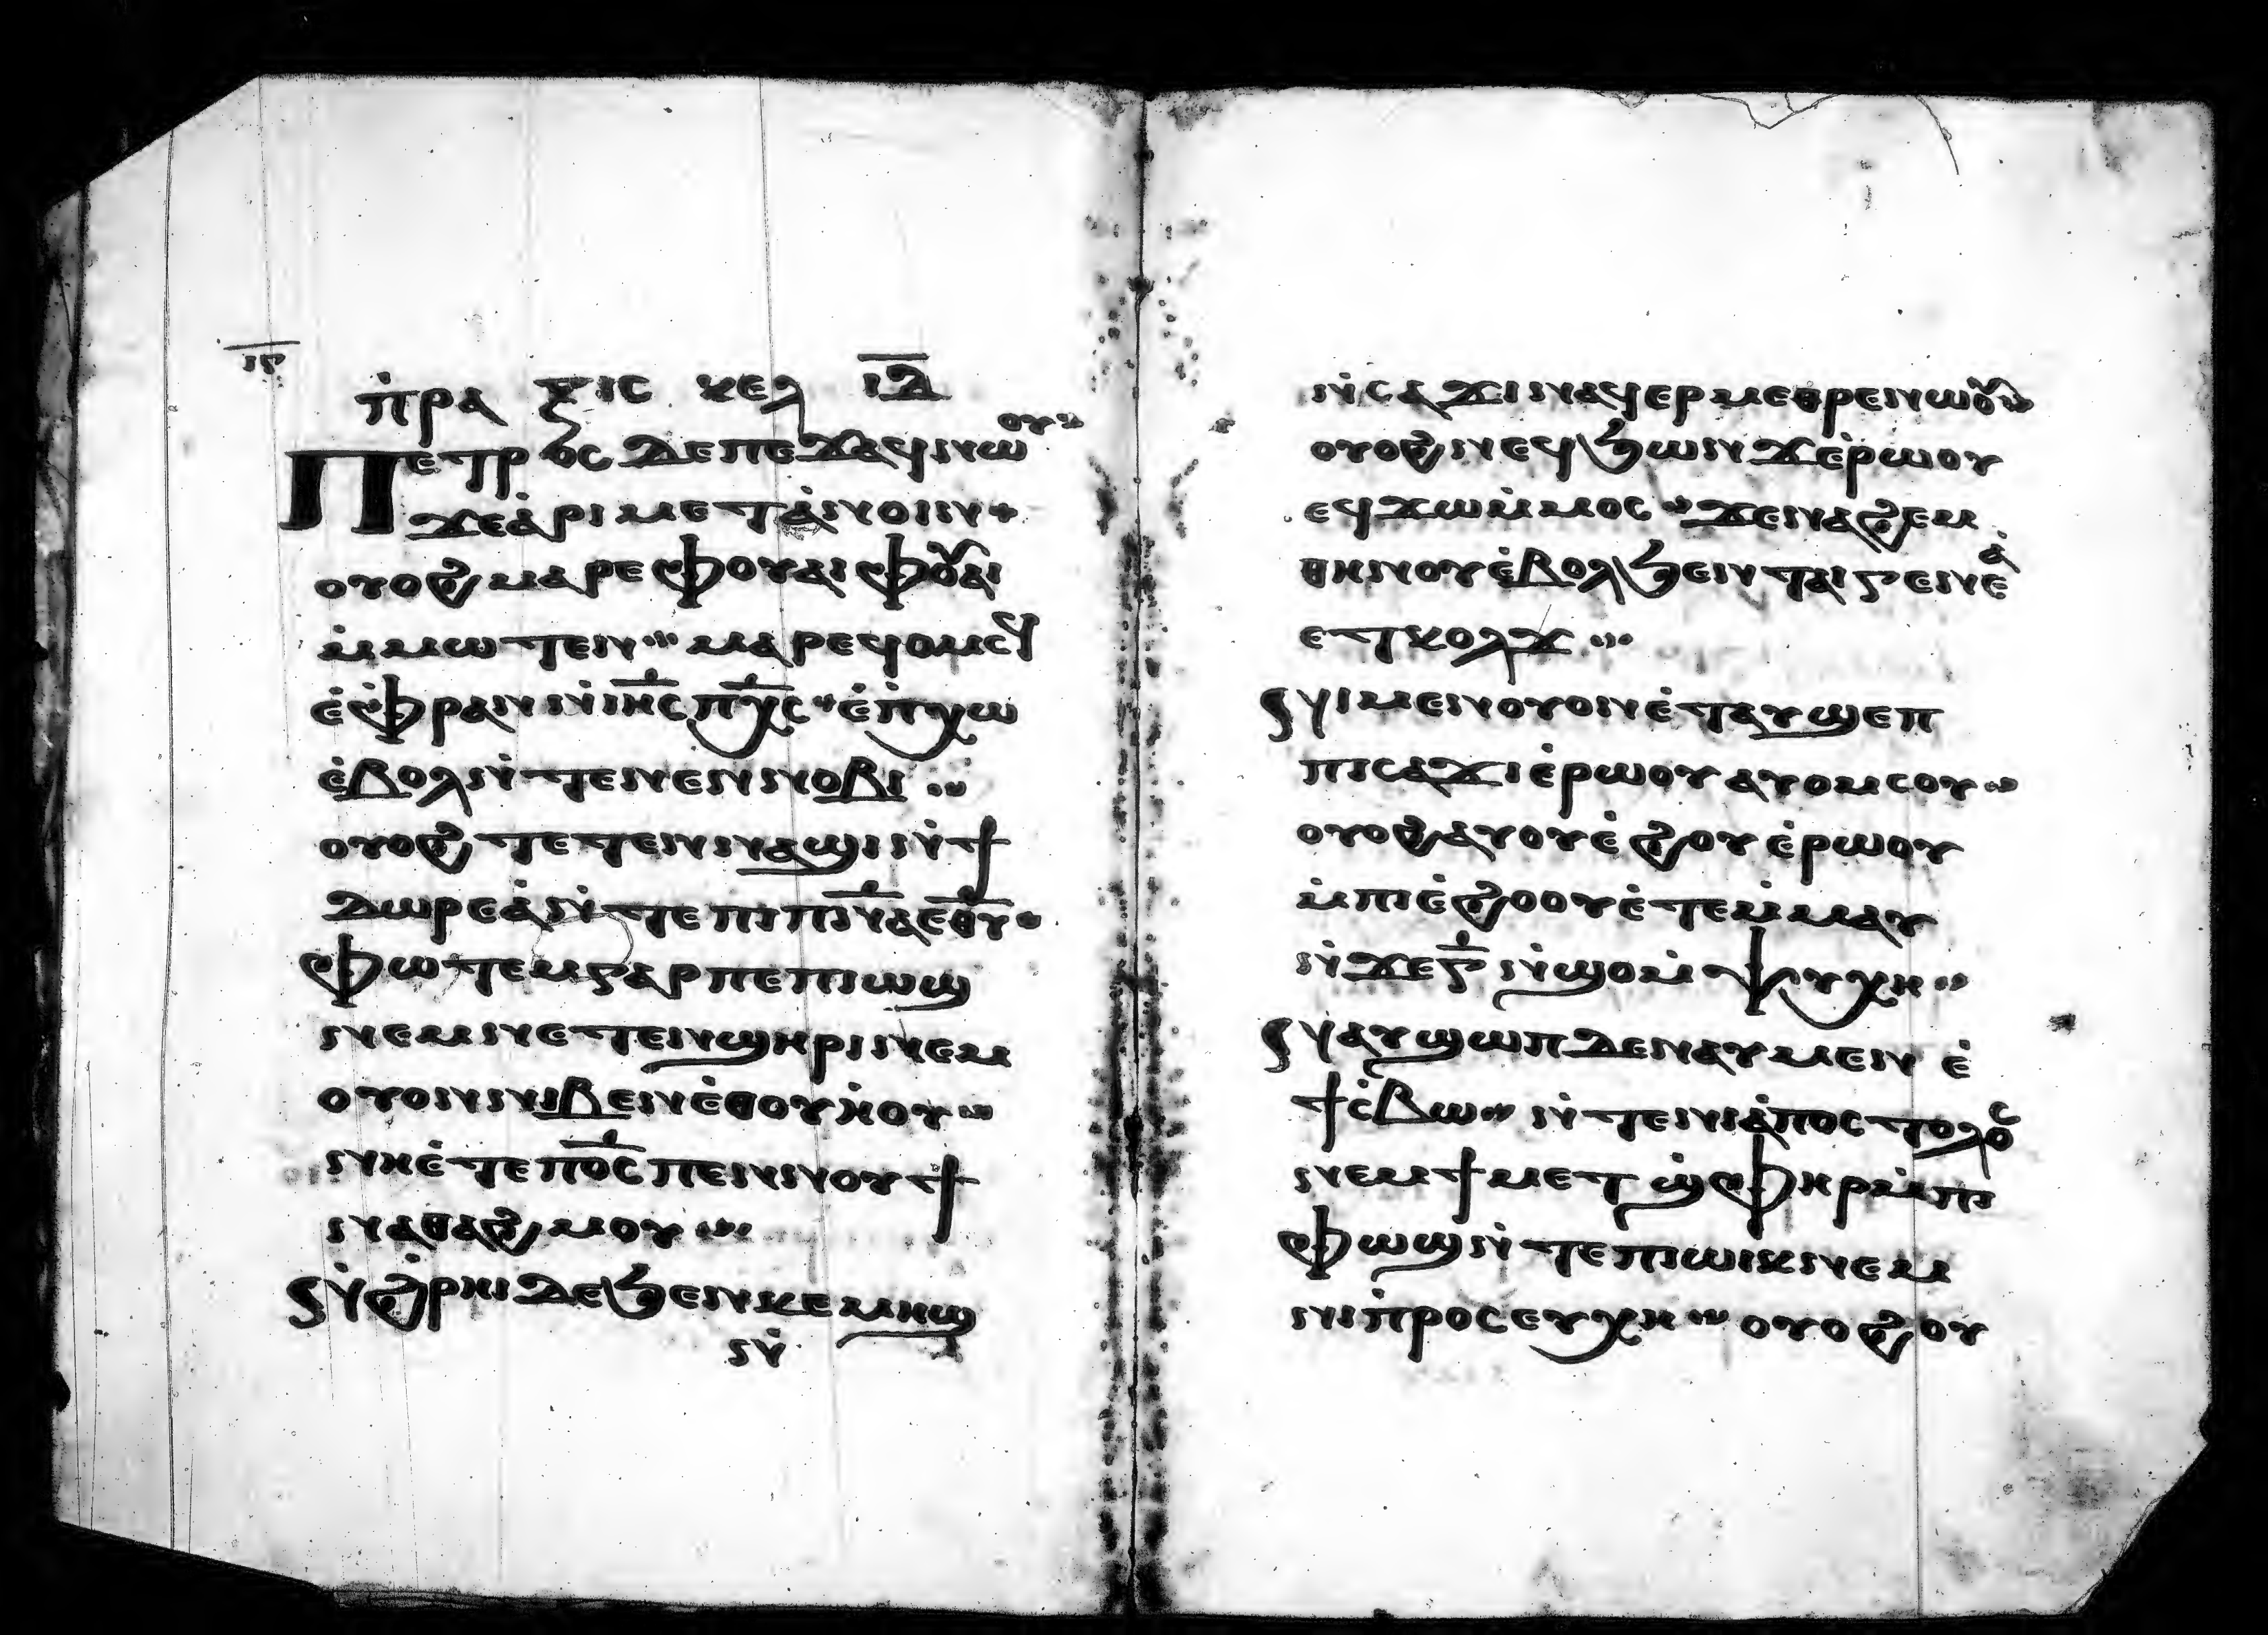 ⲓⲅ
ⲡ̇ⲣⲁⲝⲓⲥ ⲕⲉⲗ ⲓ̅ⲇ̅
Ⲡⲉⲧⲣⲟⲥ ⲇⲉ ⲡⲉϫⲁϥ ⲛⲱⲟⲩ
ϫⲉ ⲁ̇ⲣⲓⲙⲉⲧⲁ̇ⲛⲟⲓⲛ
ⲟⲩⲟϩ ⲙⲁⲣⲉ ⲫⲟⲩⲁⲓ ⲫⲟⲩⲁⲓ
ⲙ̇ⲙⲱⲧⲉⲛ ⲙⲁⲣⲉϥⲟⲙⲥϥ
ⲉ̇ⲫ̇ⲣⲁⲛ ⲛ̇ⲓⲏ̅ⲥ ⲡⲭ̅ⲥ ⲉ̇ⲡ̇ⲭⲱ
ⲉ̇ⲃⲟⲗ ⲛ̇ⲧⲉ ⲛⲉⲛⲛⲟⲃⲓ
ⲟⲩⲟϩ ⲧⲉⲧⲉⲛⲛⲁϣⲓ ⲛ̇ϯ
ⲇⲱⲣⲉⲁ̇ ⲛ̇ⲧⲉ ⲡⲓⲡⲛ̅ⲁ ⲉⲑ̅ⲩ
ⲫⲱⲧⲉⲙ ⲅⲁⲣ ⲡⲉ ⲡⲓⲱϣ
ⲛⲉⲙ ⲛⲉⲧⲉⲛϣⲏⲣⲓ ⲛⲉⲙ
ⲟⲩⲟⲛ ⲛⲓⲃⲉⲛ ⲉ̇ⲑⲟⲩⲏ̇ⲟⲩ
ⲛⲏ ⲉ̇ⲧⲉ ⲡⲟ̅ⲥ ⲡⲉⲛⲛⲟⲩϯ
ⲛⲁⲑⲁϩⲙⲟⲩ
Ⲛ̇ϩ̇ⲣⲏⲓ ⲇⲉ ϧⲉⲛ ⲕⲉⲙⲏϣ
ⲛ̇
ⲛ̇ⲥⲁϫⲓ ⲛⲁϥⲉⲣⲙⲉⲑⲣⲉ ⲛⲱⲟⲩ
ⲟⲩⲟϩ ⲛⲉϥϧⲱⲛϫ ⲉ̇ⲣⲱⲟⲩ
ⲉϥϫⲱ ⲙ̇ⲙⲟⲥ ϫⲉ ⲛⲁϩⲉⲙ
ⲑⲏⲛⲟⲩ ⲉ̇ⲃⲟⲗ ϧⲉⲛ ⲧⲁⲓⲅⲉⲛⲉⲁ̇
ⲉⲧⲕⲟⲗϫ
Ⲛⲓⲙⲉⲛⲟⲩⲟⲛ ⲉ̇ⲧⲁⲩϣⲉⲡ
ⲡⲓⲥⲁϫⲓ ⲉ̇ⲣⲱⲟⲩ ⲁⲩⲟⲙⲥⲟⲩ
ⲟⲩⲟϩ ⲁⲩⲟⲩⲉ̇ϩⲟⲩ ⲉ̇ⲣⲱⲟⲩ
ⲙ̇ⲡⲓⲉ̇ϩⲟⲟⲩ ⲉ̇ⲧⲉⲙ̇ⲙⲁⲩ
ⲛ̇ϫⲉ ⲅ̅ ⲛ̇ϣⲟ ⲙ̇ⲯⲩⲭⲏ
Ⲛⲁⲩϣⲱⲡ ⲇⲉ ⲛⲁⲩⲙⲉⲛ ⲉ̇
ϯⲥ̇ⲃⲱ ⲛ̇ⲧⲉ ⲛⲓⲁ̇ⲡⲟⲥⲧⲟⲗⲟⲥ
ⲛⲉⲙ ϯⲙⲉⲧϣ̇ⲫⲏⲣ ⲙ̇ⲡⲓ
ⲫⲱϣ ⲛ̇ⲧⲉ ⲡⲓⲱⲓⲕ ⲛⲉⲙ
ⲛⲓⲡ̇ⲣⲟⲥⲉⲩⲭⲏ ⲟⲩⲟϩ ⲟⲩ